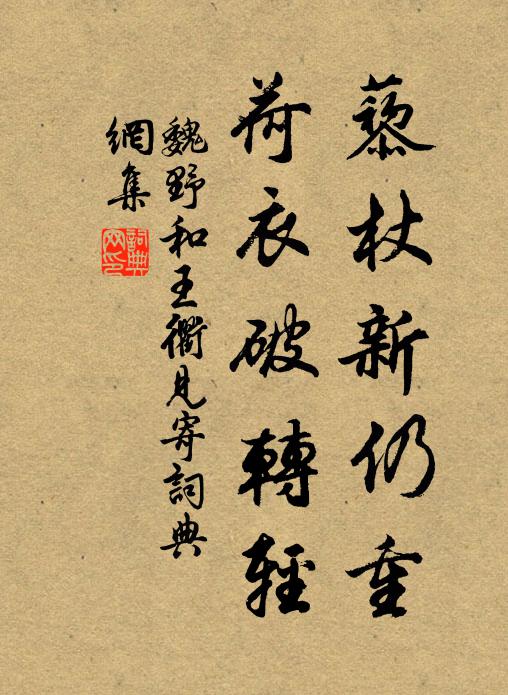 藜杖新仍重
荷衣破轉輕
魏野和王衢見寄詞典
網集
詞典
網印